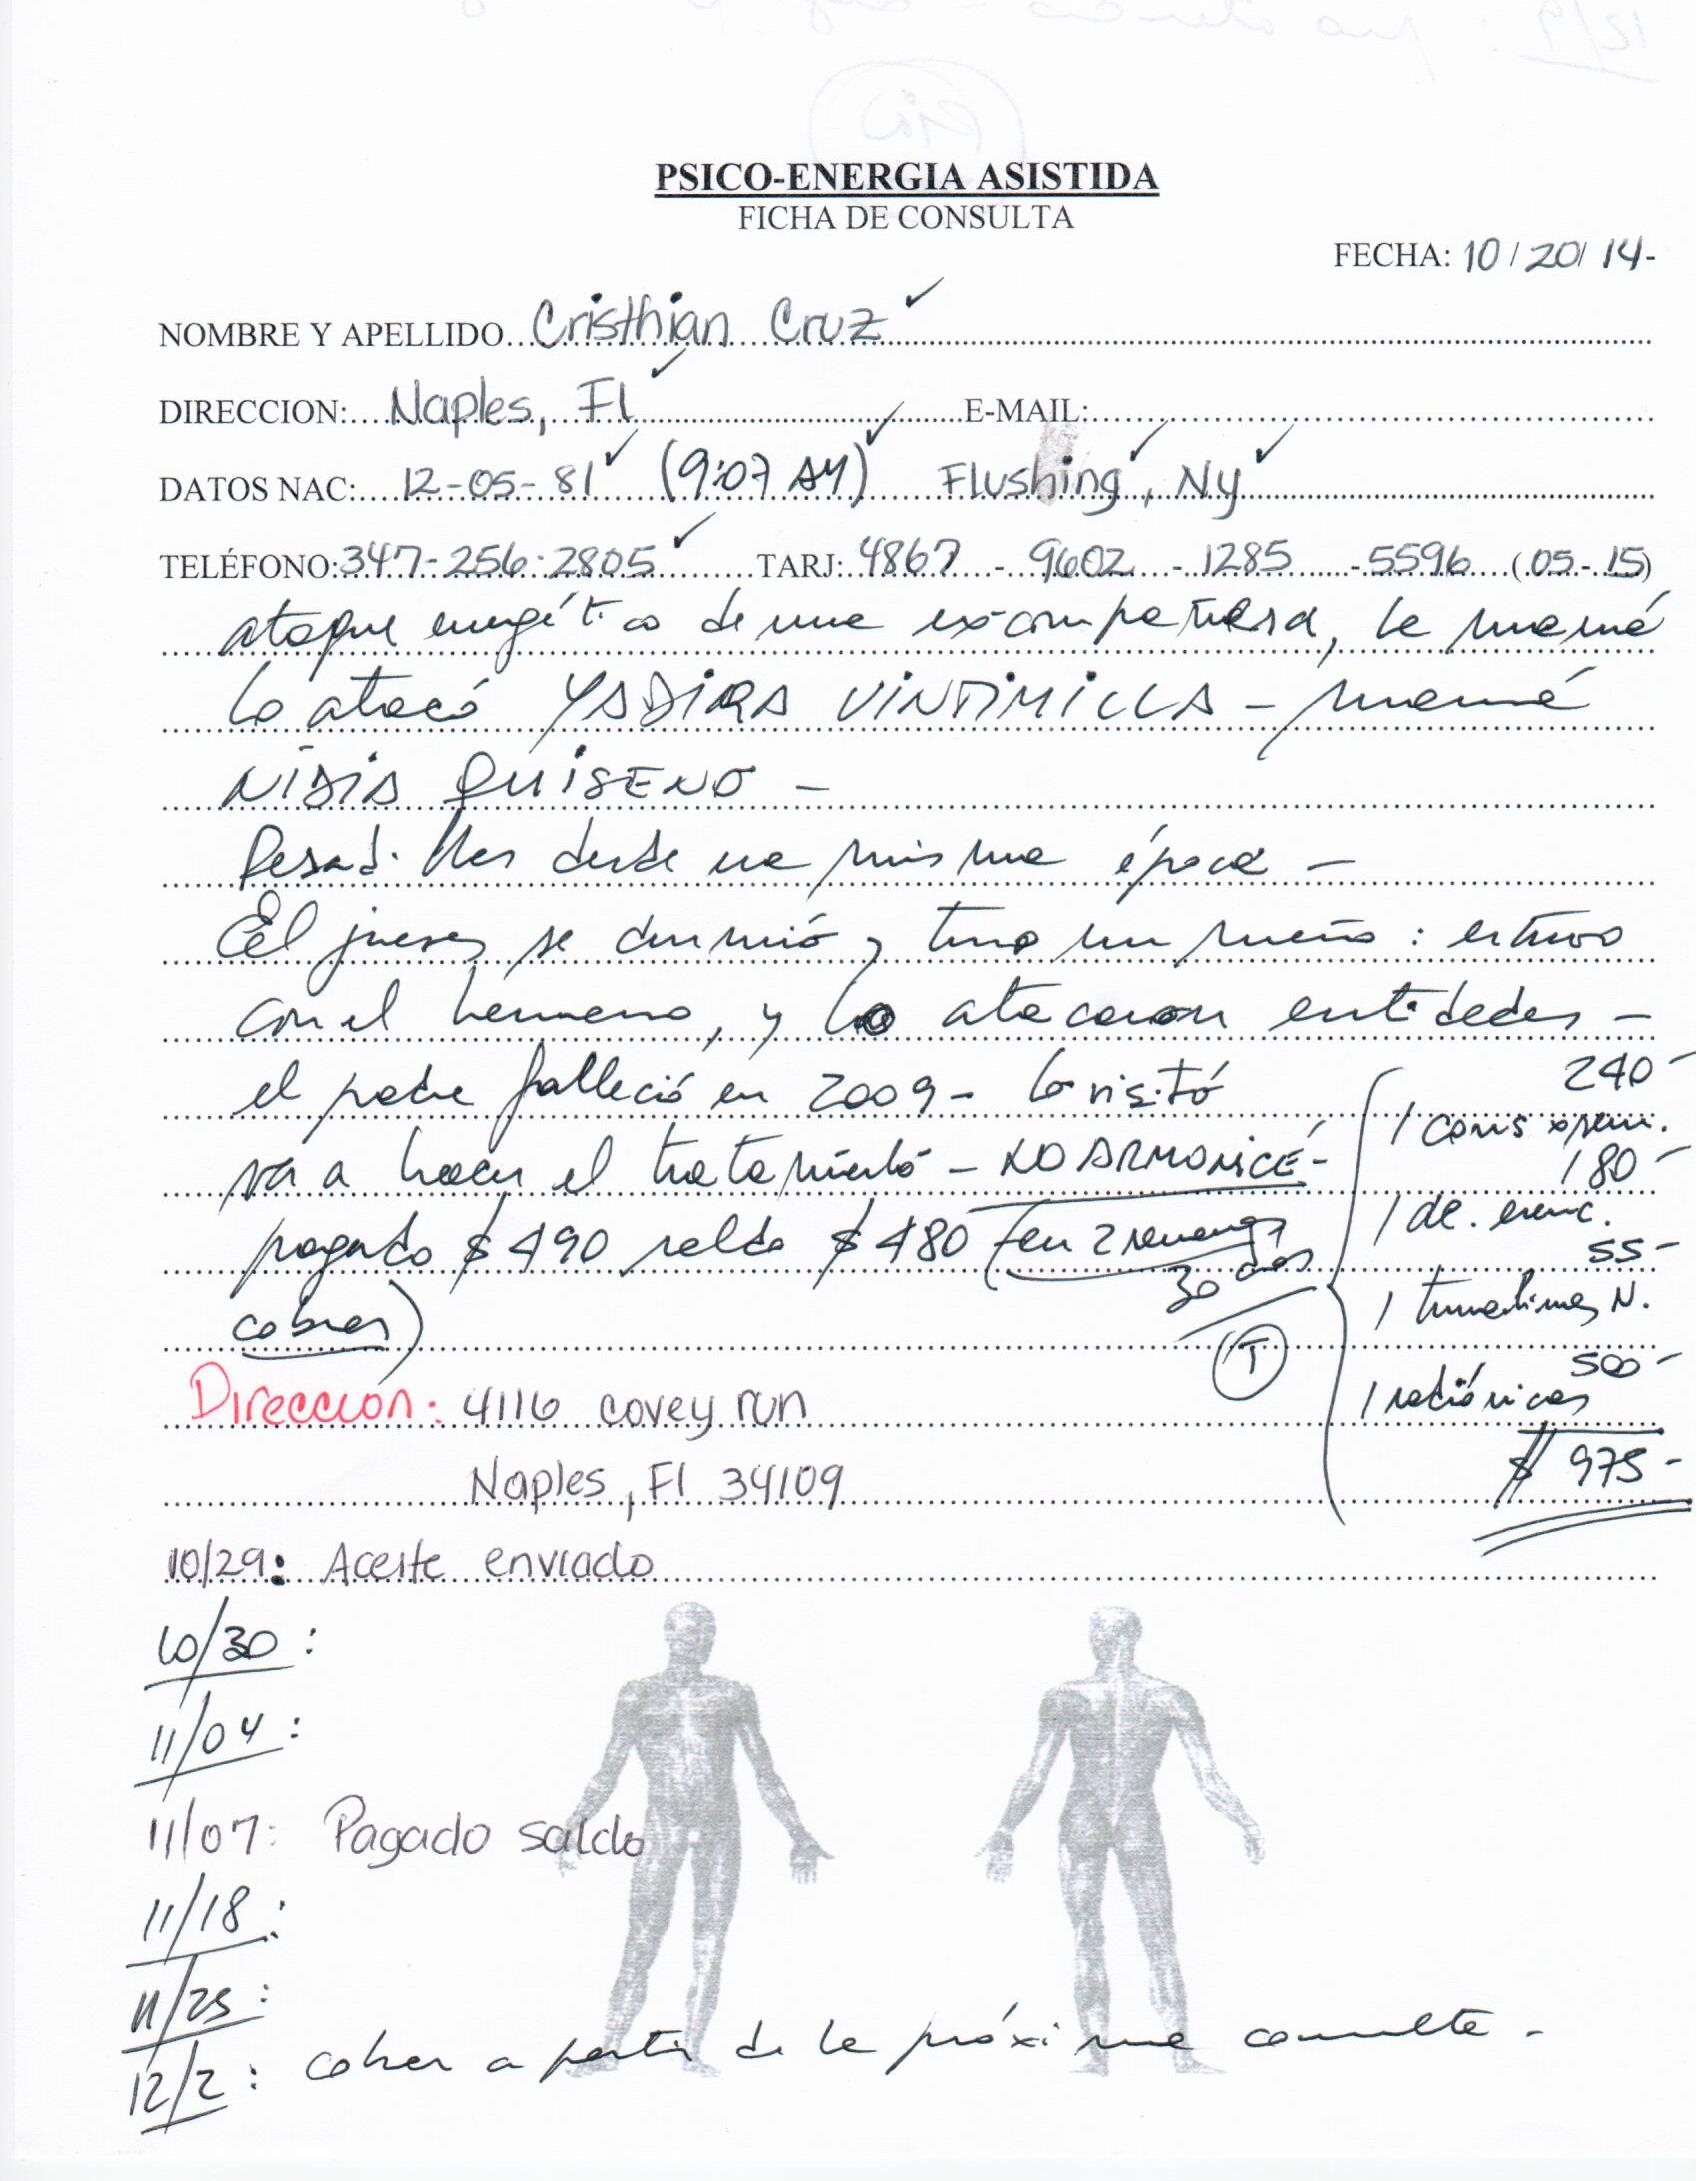 PSICO-ENERGIA ASISTIDA
FICHA DE CONSULTA
FECHA: 10 / 20 / 14-
NOMBRE Y APELLIDO Cristhian Cruz
DIRECCION: Naples, Fl E-MAIL:
DATOS NAC: 12-05-81 (9:07 AM) Flushing, Ny
TELÉFONO: 347-256-2805 TARJ: 4867 - 9602 - 1285 - 5596 (05-15)
ataque energético de una ex-compañera, la mamá
lo atacó YADIRA VINTIMILLA - mamá
NIDIA QUISENO -
Pesadillas desde una misma época -
El jueves se durmió y tuvo un sueño: estuvo
con el hermano, y lo atacaron entidades -
el padre falleció en 2009 - lo visitó
va a hacer el tratamiento - NO ARMONICÉ -
pagado $ 490 saldo $ 480 (en 2 semanas
30
cobrar)
240-
1 cons
180-
1 de. esenc.
55-
1 turmalinas N.
500-
1 radiónicas
$ 975-
T
Dirección: 4116 covey run
Naples, Fl 34109
10/29: Aceite enviado
10/30:
11/04:
11/07: Pagado saldo
11/18:
11/25:
12/2: cobrar a partir de la próxima consulta -